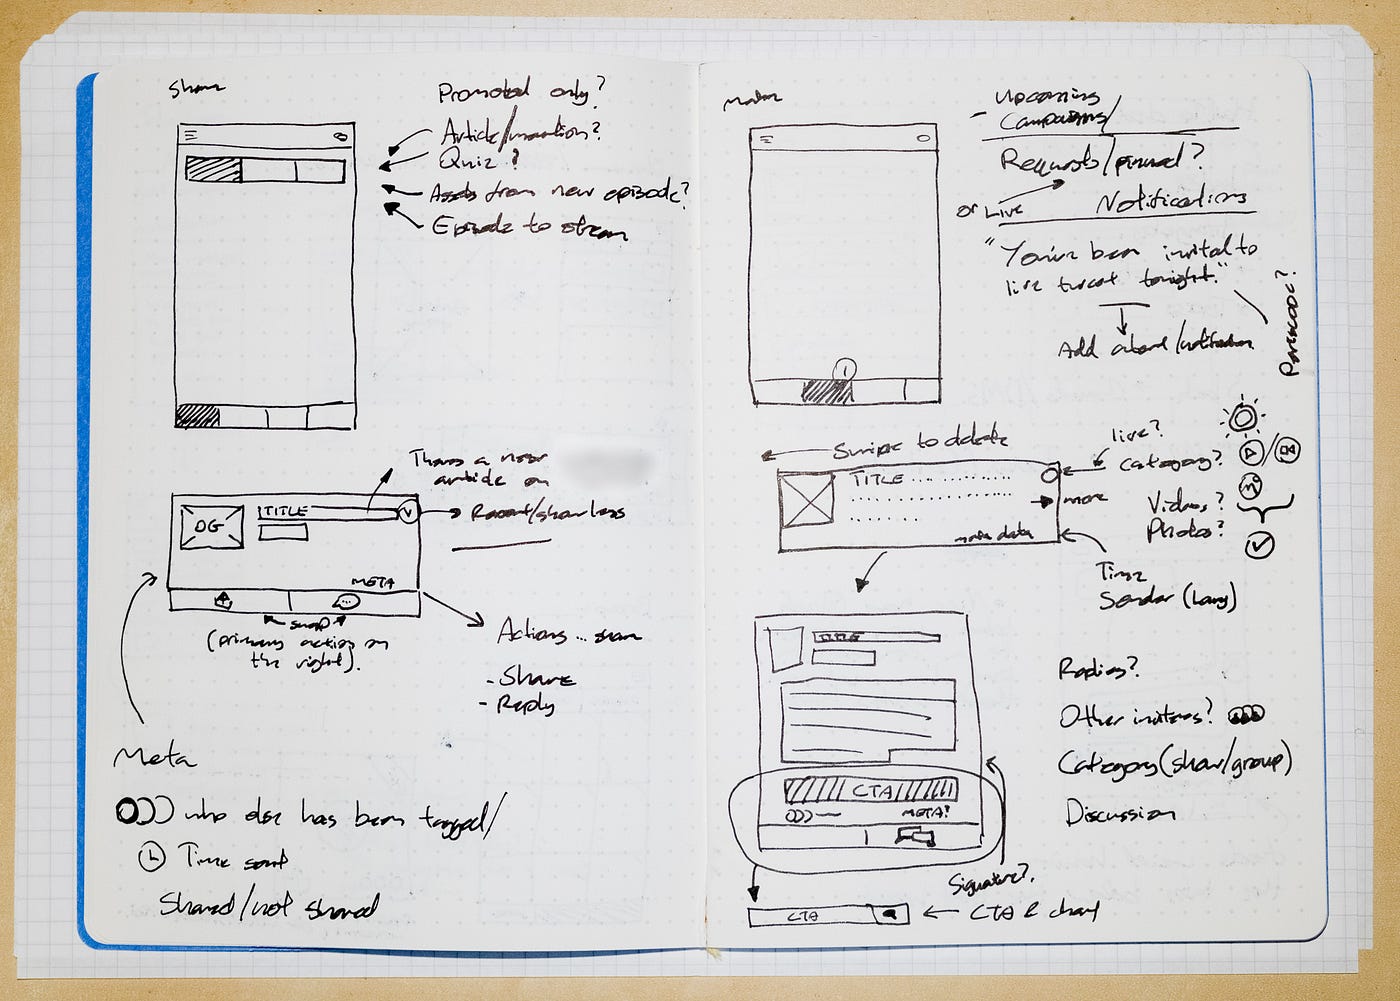 Share
Promoted only?
Article/mention?
Quiz?
Assets from new episode?
Episode to stream
There's a new
article on
OG
TITLE
V
Recent/show less
META
swap
(primary action on
the right).
Actions... share
- Share
- Reply
Meta
who else has been tagged/
Time sent
Shared/not shared
- Upcoming
Campaigns/
Requests/pinned?
or Live
Notifications
"You've been invited to
live tweet tonight."
Add /notification
1
Swipe to delete
TITLE
more
data
live?
Category?
Videos?
Photos?
Time
Sender (Lang)
TITLE
CTA
META?
Signature?
CTA
CTA & chat
Radios?
Other invitees?
Category (show/group)
Discussion